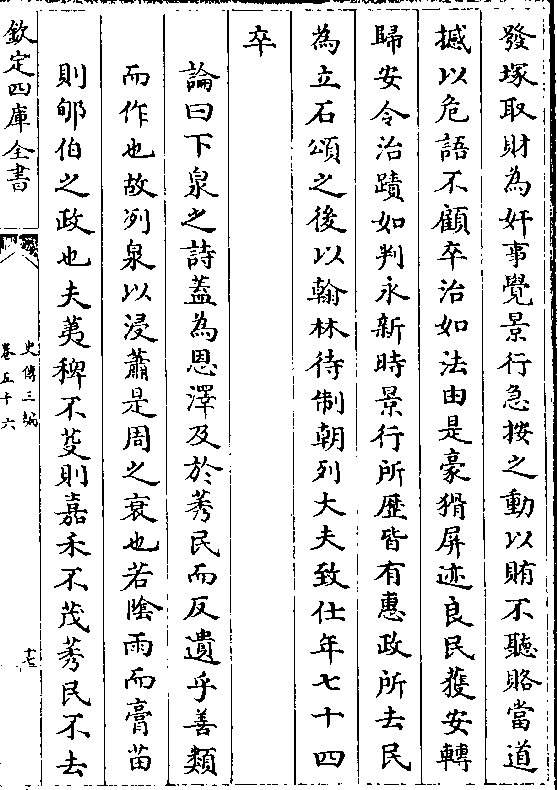 發塚取財為奸事覺景行急按之動以賄不聽賂當道
撼以危語不顧卒治如法由是豪猾屏迹良民獲安轉
歸安令治蹟如判永新時景行所歷皆有惠政所去民
為立石頌之後以翰林待制朝列大夫致仕年七十四
卒
論曰下泉之詩蓋為恩澤及於莠民而反遺乎善類
而作也故冽泉以浸蕭是周之衰也若陰雨而膏苗
則郇伯之政也夫荑稗不芟則嘉禾不茂莠民不去
欽定四庫全書
史傳三編
卷五十六